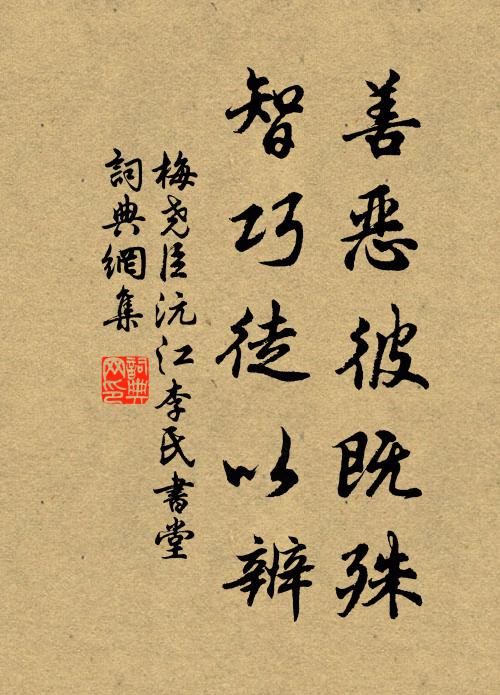 善惡彼既殊
智巧徒以辨
梅堯臣沅江李氏書堂
詞典網集
詞典
网印